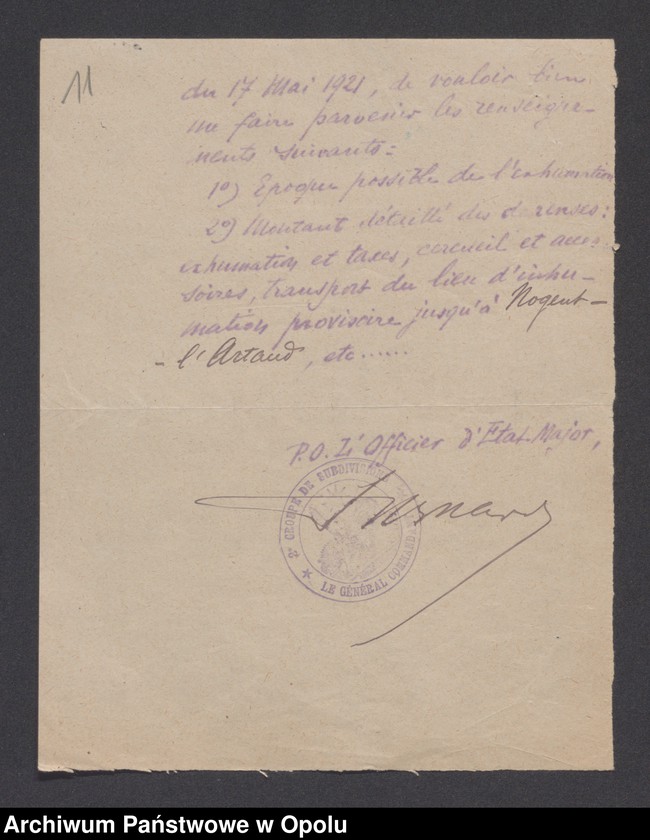 11
du 17 Mai 1921, de vouloir bien
me faire parvenir les renseigne-
ments suivants:
1º) Epoque possible de l'exhumation
2º) Montant détaillé des dépenses:
exhumation et taxes, cercueil et acces-
soires, transport du lieu d'inhu-
mation provisoire jusqu'à Nogent-
-l'Artaud, etc......
P.O. L'Officier d'Etat-Major,
2e GROUPE DE SUBDIVISIONS
LE GÉNÉRAL COMMANDANT
Archiwum Państwowe w Opolu